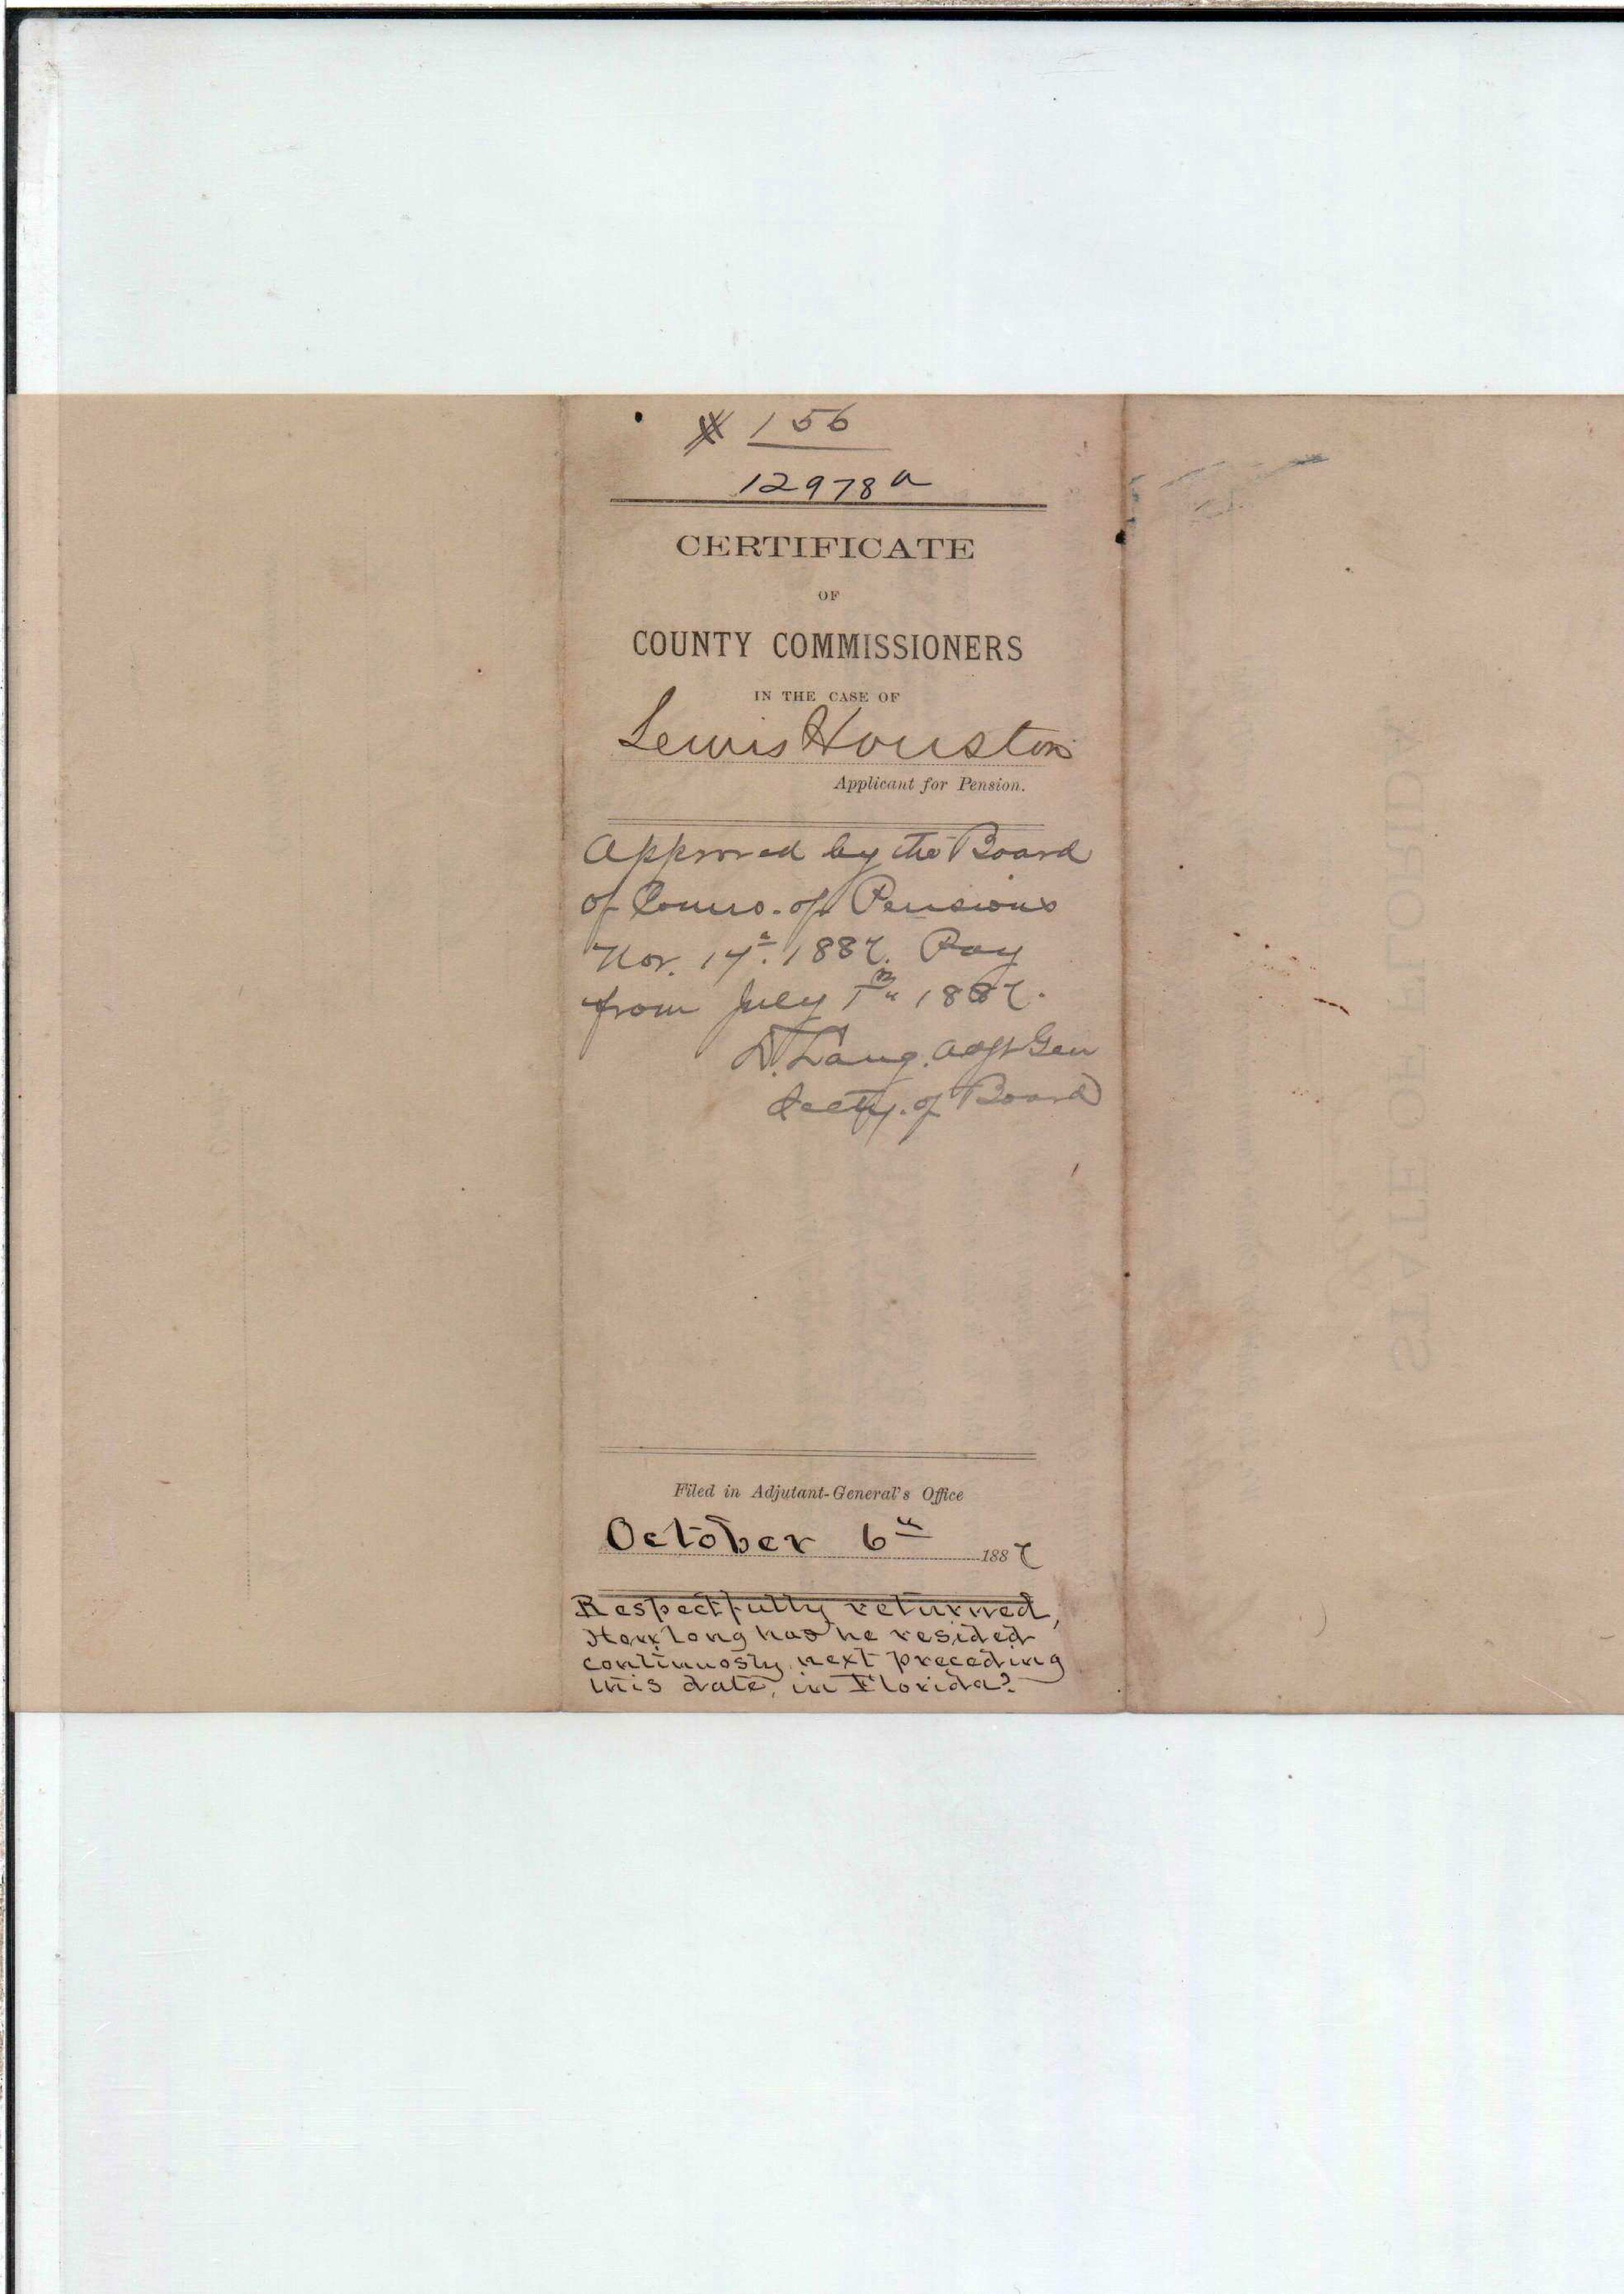 # 156
12978a
CERTIFICATE
OF
COUNTY COMMISSIONERS
IN THE CASE OF
Lewis Houston
Applicant for Pension.
Approved by the Board
of Comrs. of Pensions
Nov. 17th. 1887. Pay
from July 1887.
D. Lang. Adjt Gen
Secty. of Board
Filed in Adjutant-General's Office
October 6th 1887
Respectfully returned,
How long has he resided
continuosly next preceding
this date, in Florida?
STATE OF FLORIDA